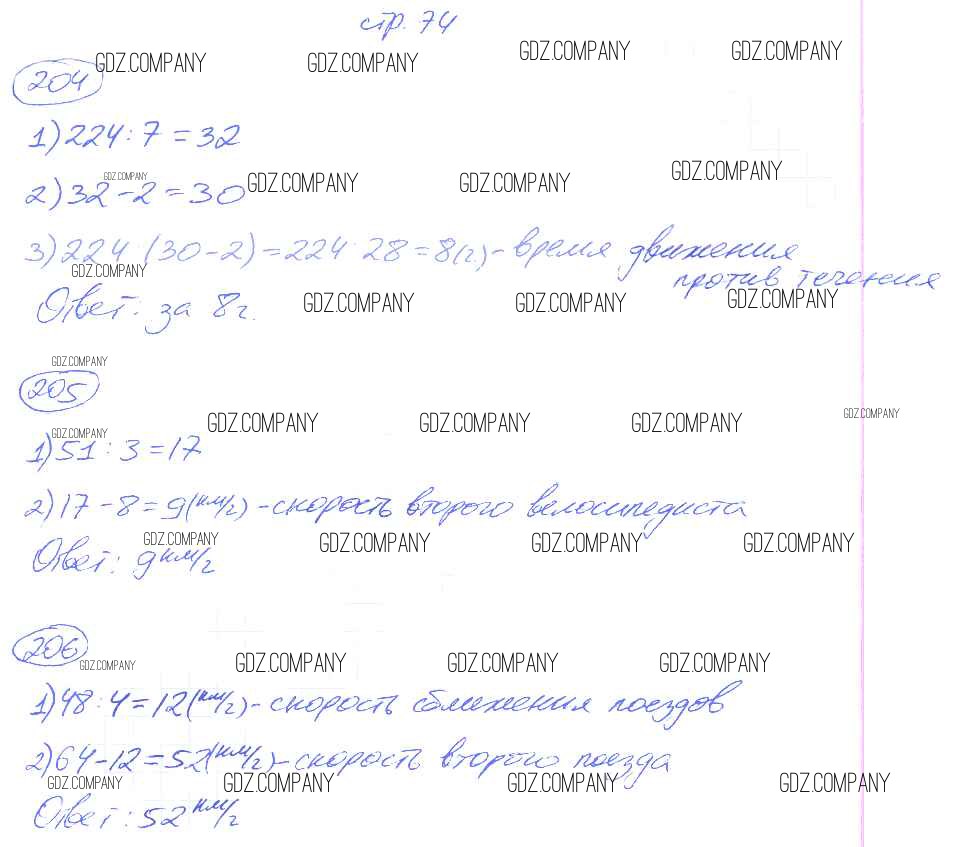 стр. 74
GDZ.COMPANY GDZ.COMPANY GDZ.COMPANY GDZ.COMPANY
204
1) 224 : 7 = 32
GDZ.COMPANY GDZ.COMPANY GDZ.COMPANY GDZ.COMPANY
2) 32 - 2 = 30
3) 224 : (30 - 2) = 224 : 28 = 8 (г) - время движения
против течения
GDZ.COMPANY GDZ.COMPANY GDZ.COMPANY GDZ.COMPANY
Ответ: за 8 г.
GDZ.COMPANY
205
GDZ.COMPANY GDZ.COMPANY GDZ.COMPANY GDZ.COMPANY GDZ.COMPANY
1) 51 : 3 = 17
2) 17 - 8 = 9 (км/г) - скорость второго велосипедиста
GDZ.COMPANY GDZ.COMPANY GDZ.COMPANY GDZ.COMPANY
Ответ: 9 км/г
206
GDZ.COMPANY GDZ.COMPANY GDZ.COMPANY GDZ.COMPANY
1) 48 : 4 = 12 (км/г) - скорость сближения поездов
2) 64 - 12 = 52 (км/г) - скорость второго поезда
GDZ.COMPANY GDZ.COMPANY GDZ.COMPANY GDZ.COMPANY
Ответ: 52 км/г